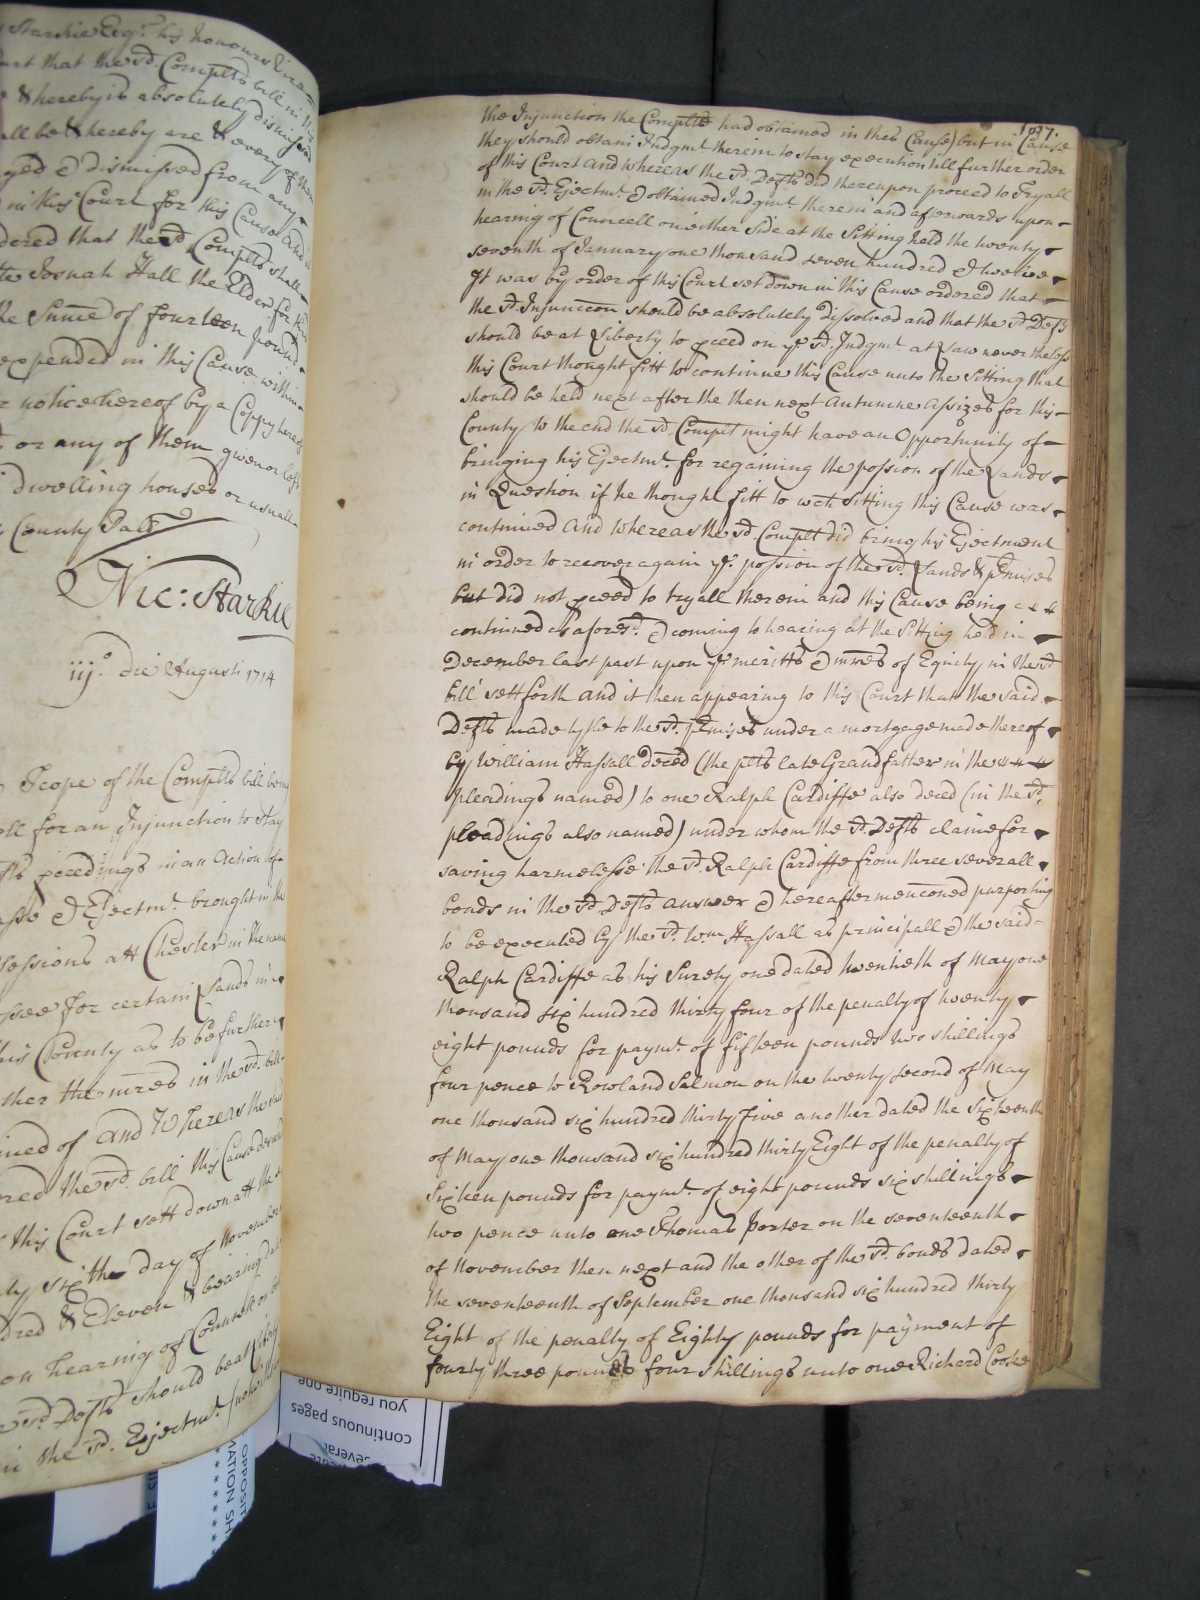 Starkie Esqr. his honours
that the sd. Complts bill in this
& hereby is absolutely dismissed
all be & hereby are & every of them
& dismissed from any
in this Court for this Cause And
dered that the sd Complts shall
Josuah Hall the Elder for the
the Sume of fourteen pound
expended in this Cause within
notice hereof by a Coppy hereof
or any of them given or left
dwelling houses or usuall
County Palt
Nic: Starkie
iijo. die Augusti 1714
Scope of the Complts bill being
for an Injunction to stay
pceedings in an Action of
& Ejectmt. brought in the
Sessions att Chester in the name
for certain Lands in
this County as to be further
the mres in the sd. bill
and Whereas the said
the sd. bill this Cause
this Court sett down att the
six the day of November
dred & Eleven & hearing
on hearing of Councell on
sd. Defts should be att
in the sd. Ejectmt.
197.
the Injunction the Complts had obtained in this Cause) but in Cause
they should obtain Judgmt. therein to stay execution till further order
of this Court And Whereas the sd. Defts did thereupon proceed to Tryall
in the sd. Ejectmt. & obtained Judgmt. therein and afterwards upon
hearing of Councell on either Side at the Sitting held the twenty
seventh of January one thousand seven hundred & twelve
It was by order of this Court set down in this Cause ordered that
the sd. Injunccon should be absolutely dissolved and that the sd. Defts
should be at Liberty to pceed on ye. sd. Judgmt. at Law never theless
this Court thought fitt to continue this Cause unto the Sitting that
should be held next after the then next Autumne Assizes for this
County to the end the sd. Complt might have an Opportunity of
bringing his Ejectmt. for regaining the possion of the Lands
in Question if he thought fitt to wch Sitting this Cause was
continued And Whereas the sd. Complt did bring his Ejectment
in order to recover again ye. possion of the sd. Lands & pmises
but did not pceed to tryall therein and this Cause being
continued as aforesd. & coming to hearing at the Sitting held in
December last past upon ye. meritts & mres of Equity in the sd
bill sett forth and it then appearing to this Court that the said
Defts made tytle to the sd. pmises under a mortgage made thereof
by William Hassall deced (the plts late Grandfather in the
pleadings named) to one Ralph Cardiffe also deced (in the sd.
pleadings also named) under whom the sd. Defts claime for
saving harmelesse the sd. Ralph Cardiffe from three severall
bonds in the sd. Defts answer & hereafter menconed purporting
to be executed by the sd. Wm. Hassall as principall & the said
Ralph Cardiffe as his Surety one dated twentieth of May one
thousand six hundred thirty four of the penalty of twenty
eight pounds for paymt. of fifteen pounds two shillings
four pence to Rowland Salmon on the twenty second of May
one thousand six hundred thirty five another dated the sixteenth
of May one thousand six hundred thirty Eight of the penalty of
Sixteen pounds for paymt. of eight pounds six shillings
two pence unto one Thomas Porter on the seventeenth
of November then next and the other of the sd. bonds dated
the seventeenth of September one thousand six hundred thirty
Eight of the penalty of Eighty pounds for payment of
fourty three pounds four shillings unto one Richard Cooke
you require one
continuous pages
several
OPPOSIT
MATION SH